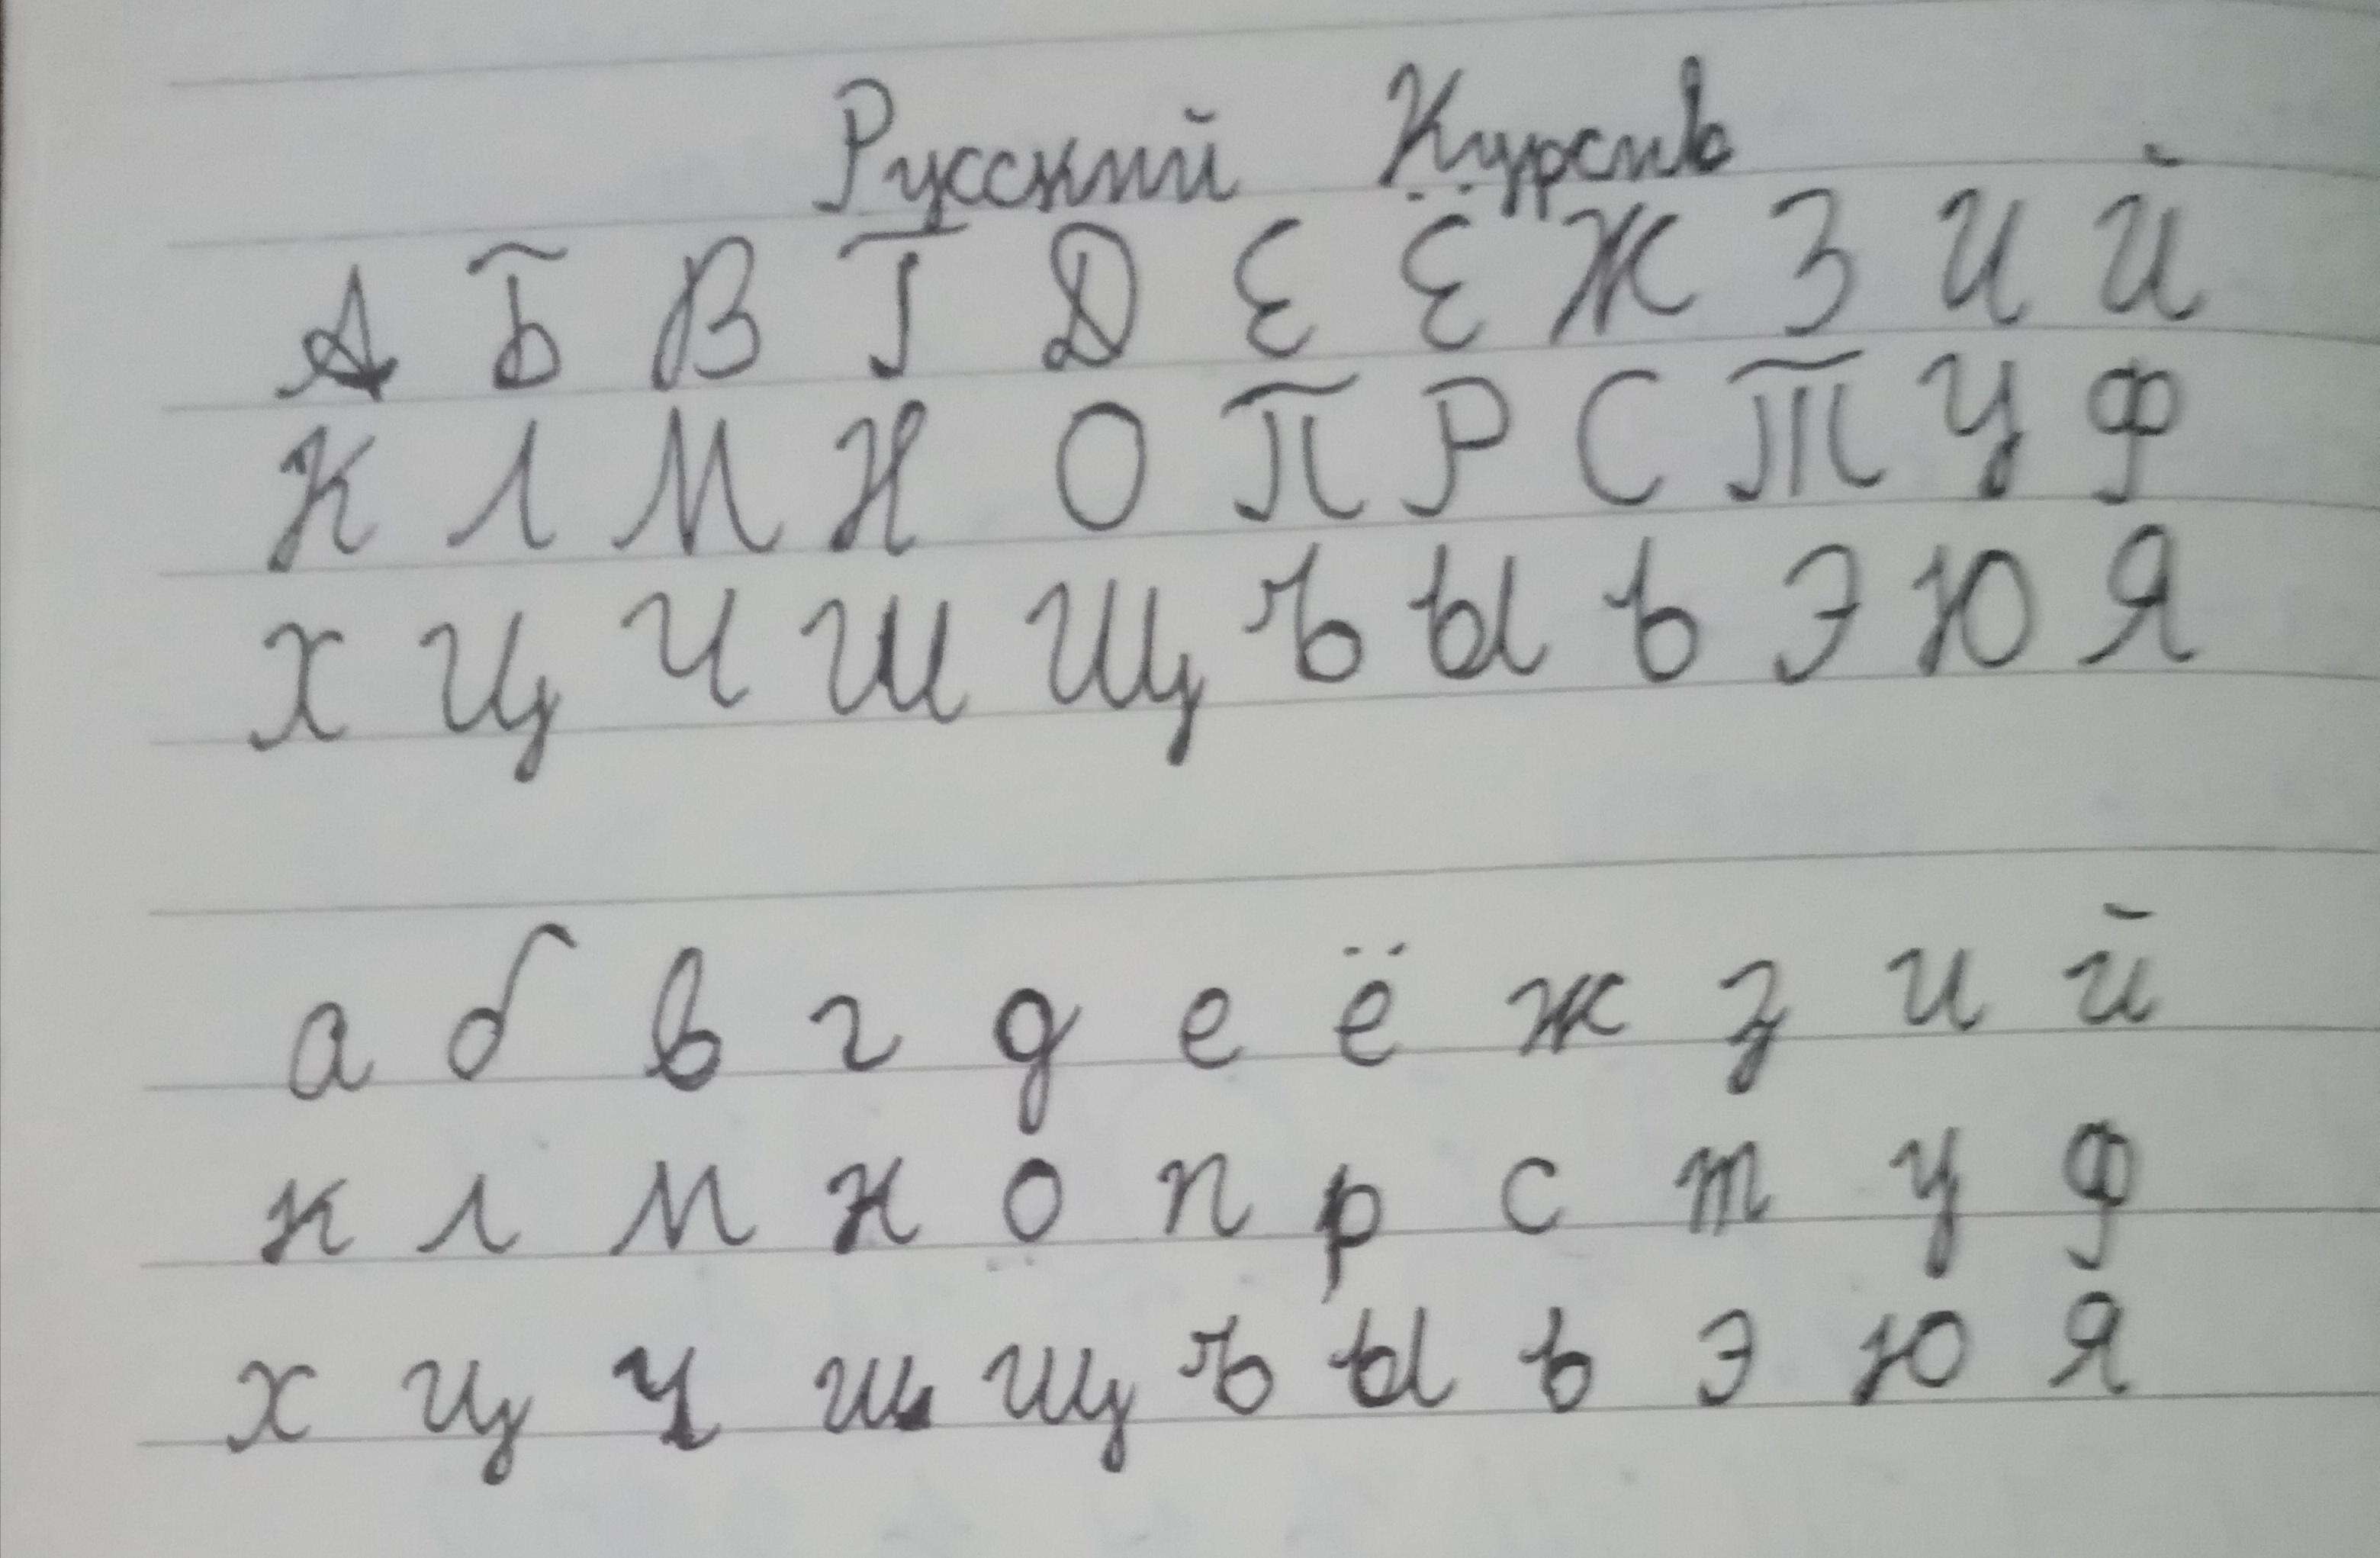 Русский Курсив
А Б В Г Д Е Ё Ж З И Й
К Л М Н О П Р С Т У Ф
Х Ц Ч Ш Щ Ъ Ы Ь Э Ю Я
а б в г д е ё ж з и й
к л м н о п р с т у ф
х ц ч ш щ ъ ы ь э ю я